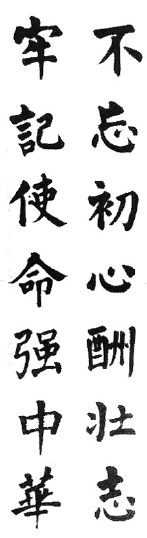 不忘初心酬壯志
牢記使命强中華